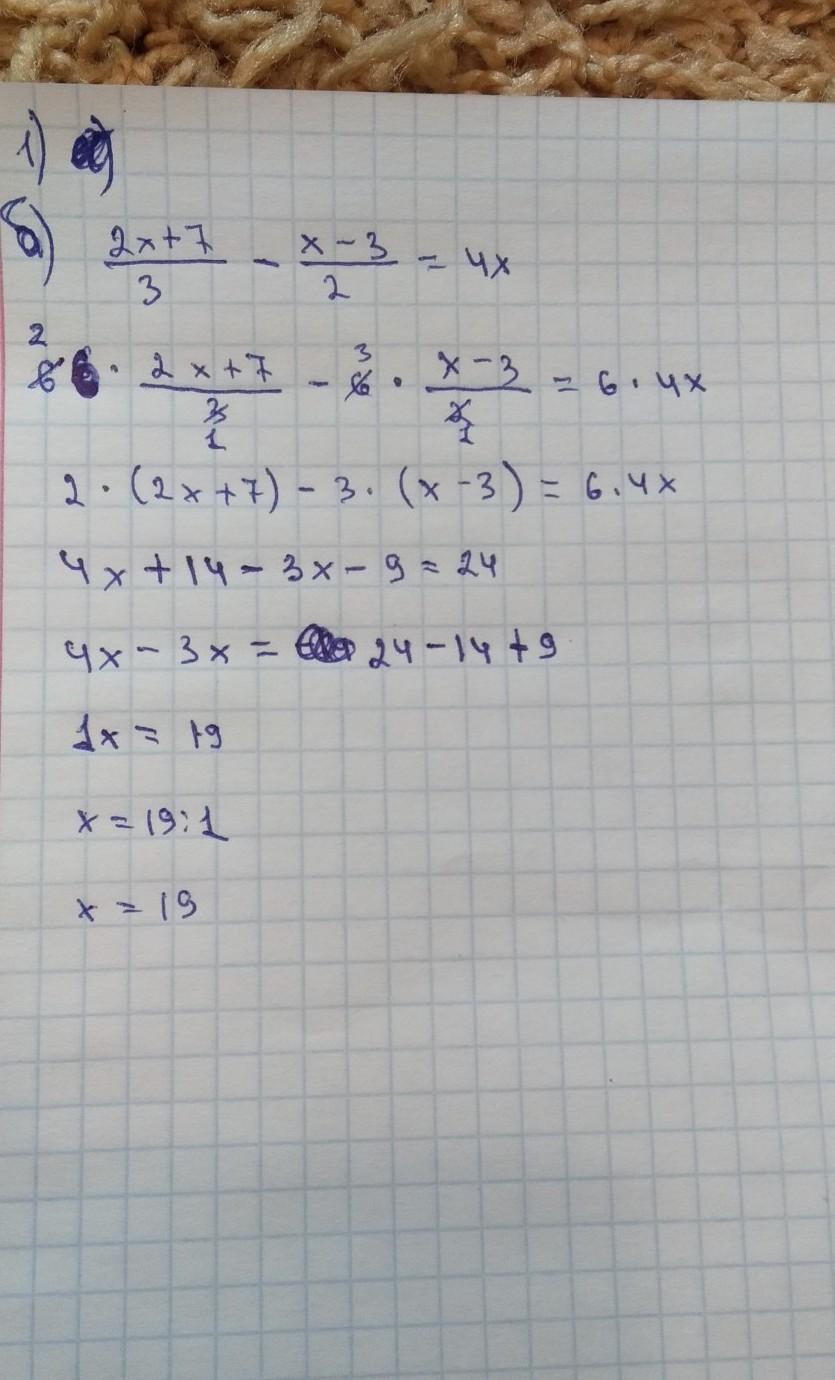 1)
б) (2x+7)/3 - (x-3)/2 = 4x
2 3
6 · (2x+7)/3 - 6 · (x-3)/2 = 6 · 4x
1 1
2 · (2x+7) - 3 · (x-3) = 6 · 4x
4x + 14 - 3x - 9 = 24
4x - 3x = 24 - 14 + 9
1x = 19
x = 19:1
x = 19